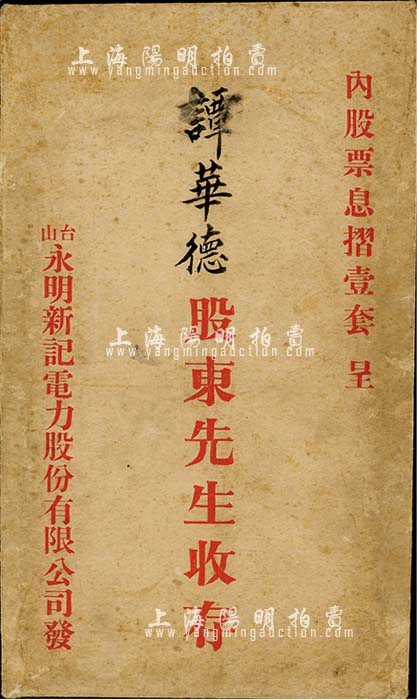 內股票息摺壹套 呈
譚華德股東先生收存
台山永明新記電力股份有限公司發
上海陽明拍賣
www.yangmingauction.com
上海陽明拍賣
www.yangmingauction.com
上海陽明拍賣
www.yangmingauction.com